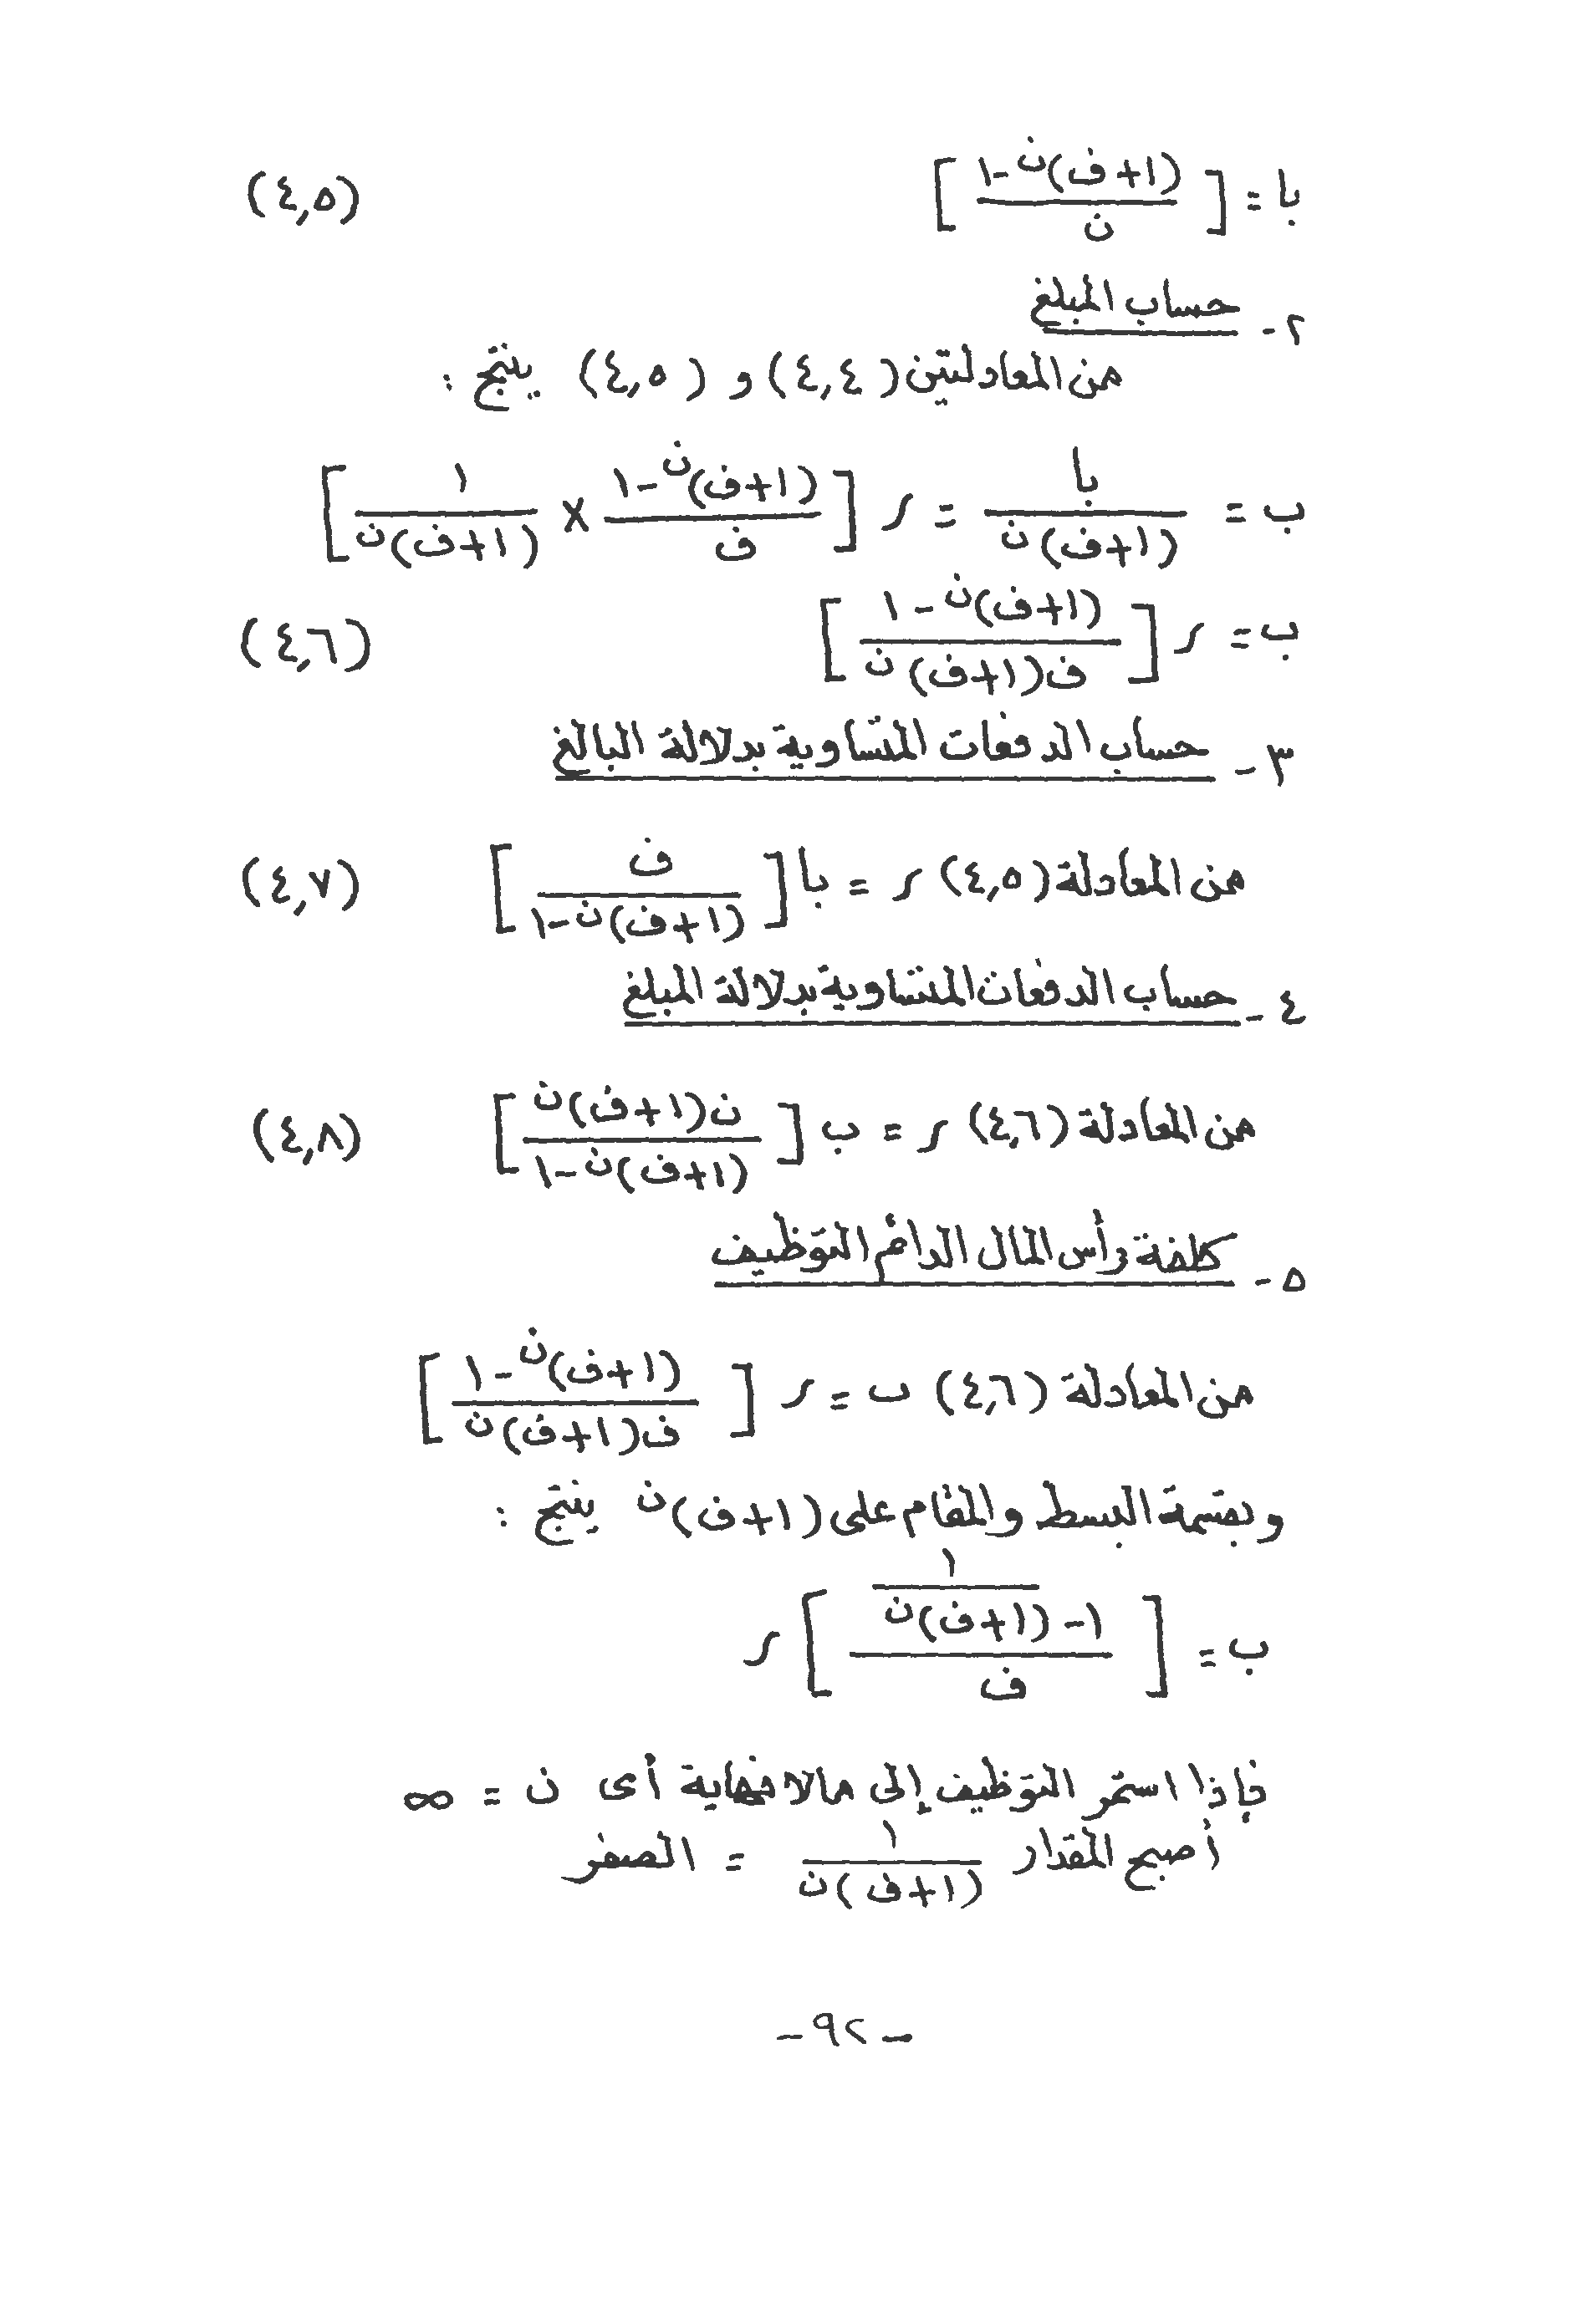 با = [ (١+ف)ن-١ / ن ] (٤,٥)
٢- حساب المبلغ
من المعادلتين (٤,٤) و (٤,٥) ينتج :
ب = با / (١+ف)ن = ر [ (١+ف)ن-١ / ف × ١ / (١+ف)ن ]
ب = ر [ (١+ف)ن-١ / ف(١+ف)ن ] (٤,٦)
٣- حساب الدفعات المتساوية بدلالة البالغ
من المعادلة (٤,٥) ر = با [ ف / (١+ف)ن-١ ] (٤,٧)
٤- حساب الدفعات المتساوية بدلالة المبلغ
من المعادلة (٤,٦) ر = ب [ ن(١+ف)ن / (١+ف)ن-١ ] (٤,٨)
٥- كلفة رأس المال الدائم التوظيف
من المعادلة (٤,٦) ب = ر [ (١+ف)ن-١ / ف(١+ف)ن ]
وبقسمة البسط والمقام على (١+ف)ن ينتج :
ب = [ ١- ١ / (١+ف)ن / ف ] ر
فإذا استمر التوظيف إلى مالا نهاية أى ن = ∞
أصبح المقدار ١ / (١+ف)ن = الصفر
-٩٢-